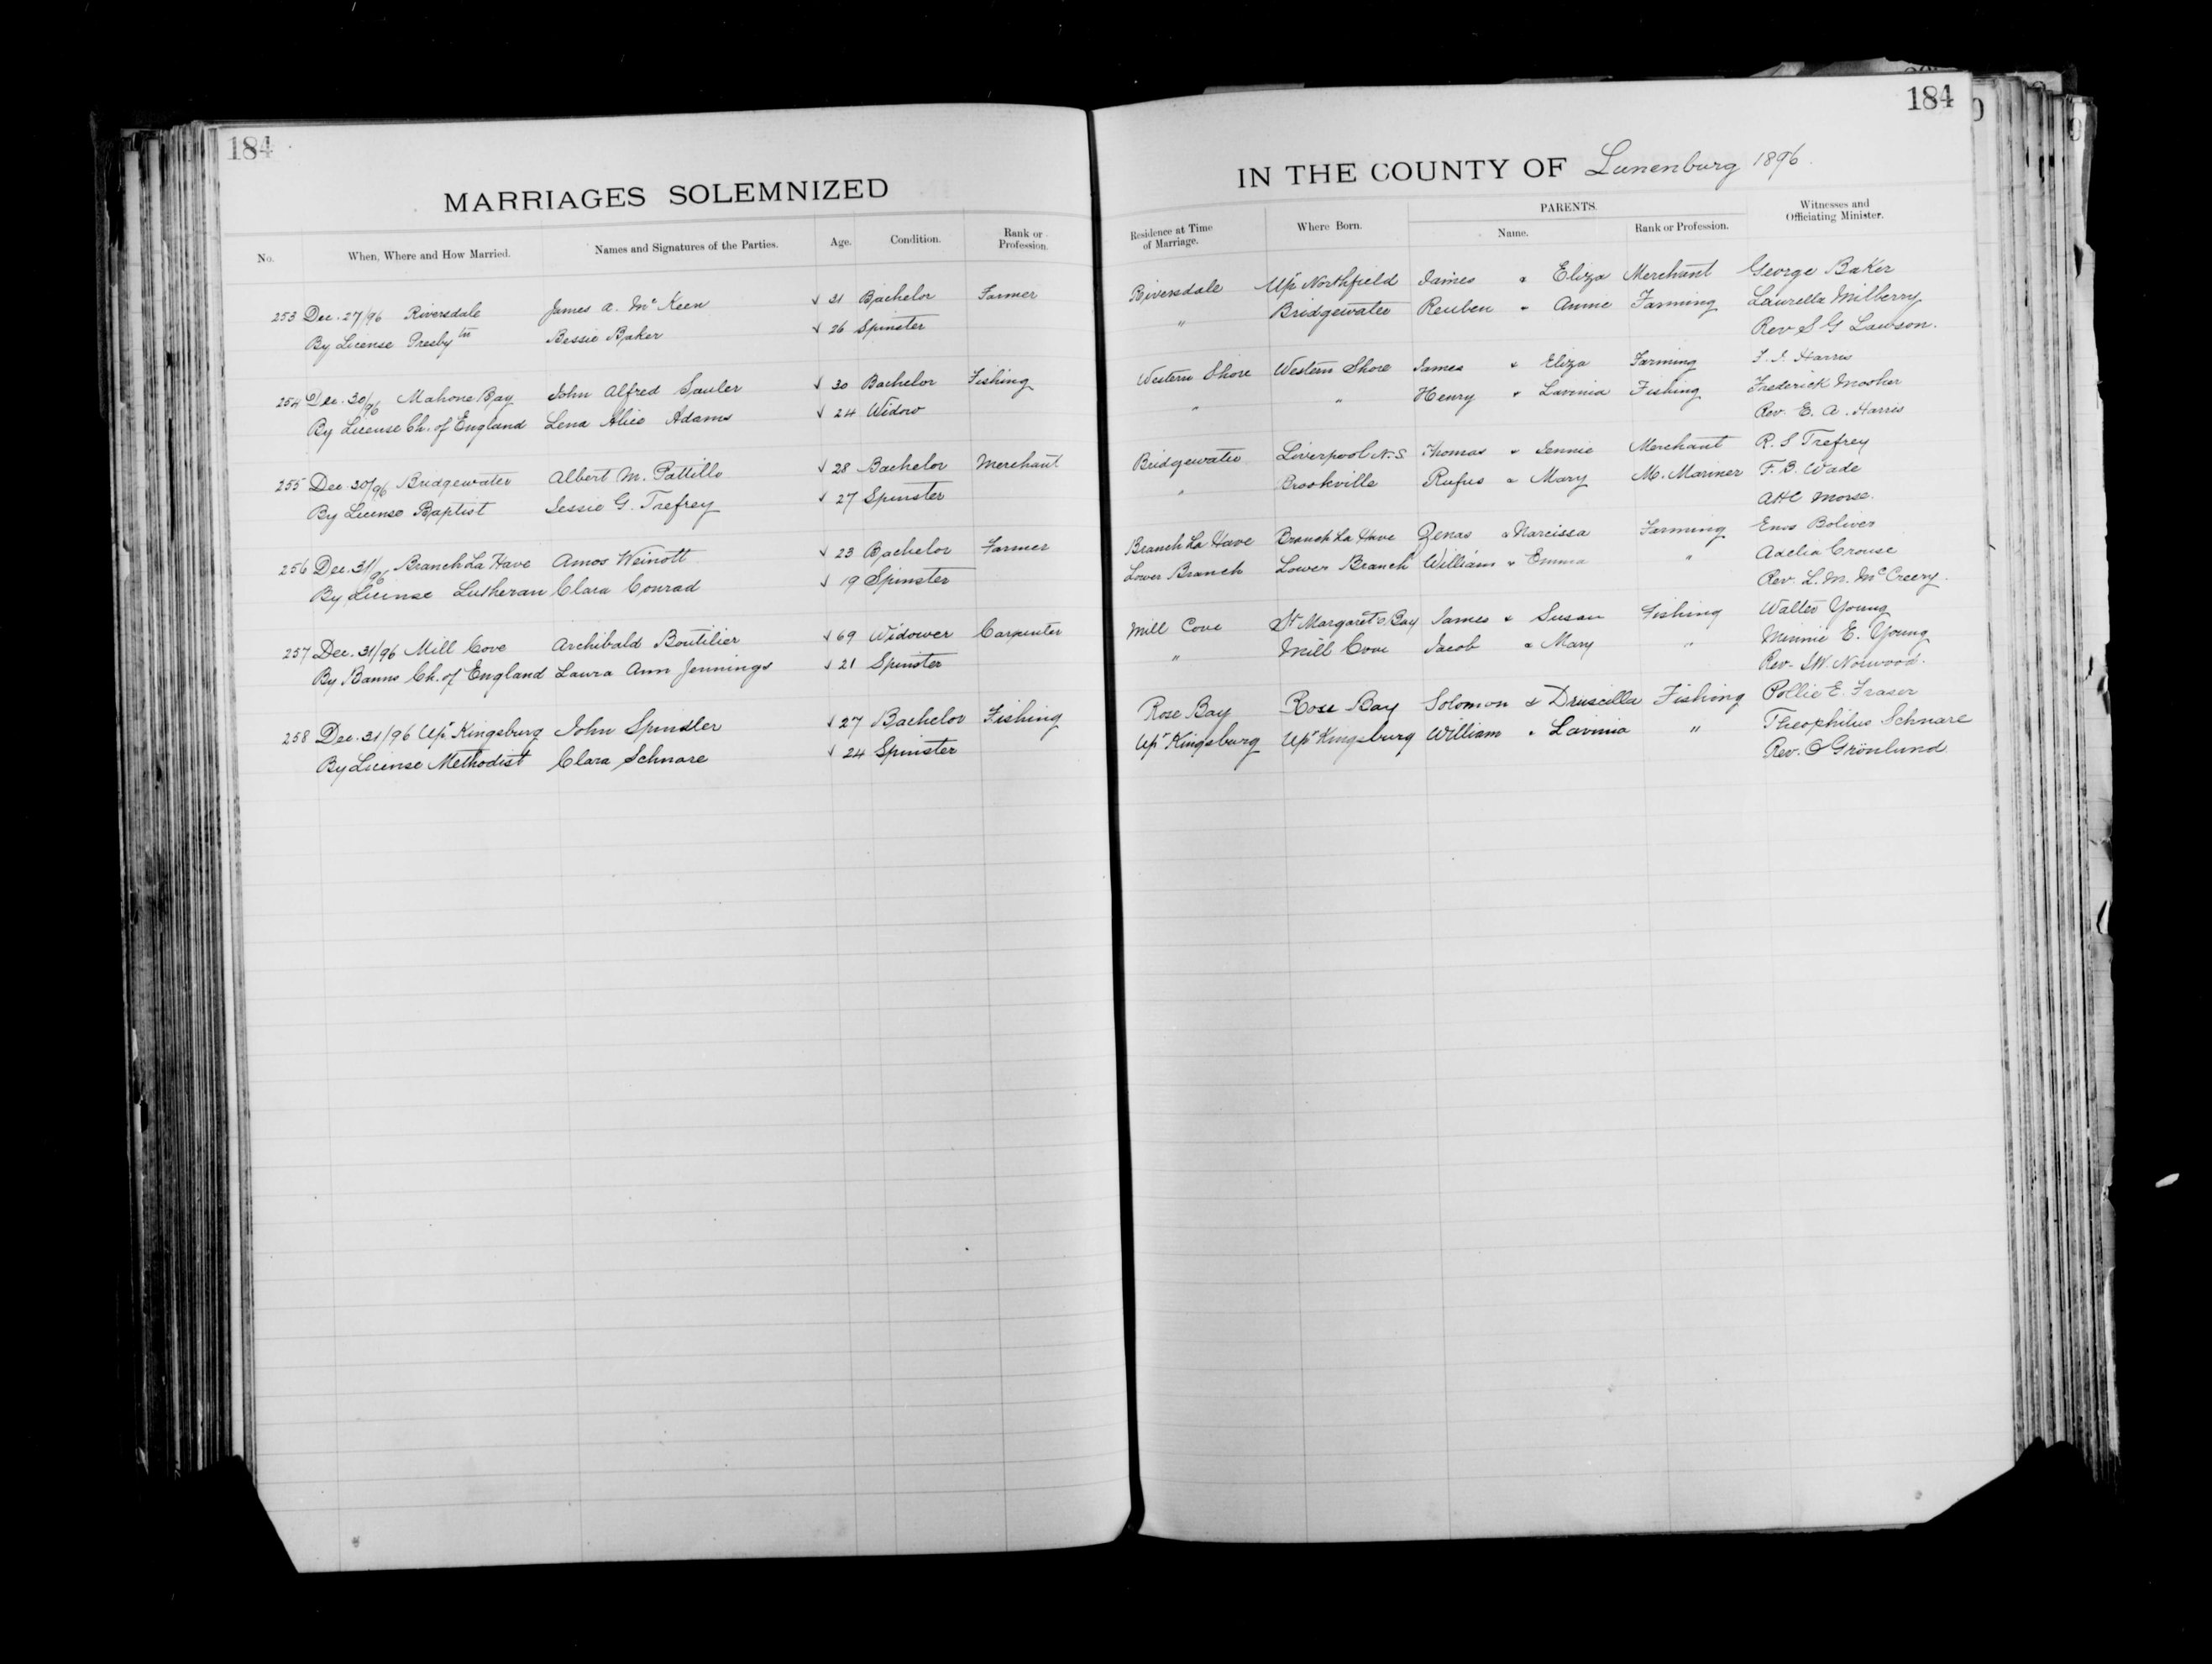 184
MARRIAGES SOLEMNIZED
No. When, Where and How Married. Names and Signatures of the Parties. Age. Condition. Rank or Profession.
253 Dec. 27/96 Riversdale James A. McKeen √ 31 Bachelor Farmer
By License Presbytn Bessie Baker √ 26 Spinster
254 Dec. 30/96 Mahone Bay John Alfred Sawler √ 30 Bachelor Fishing
By License Ch. of England Lena Alice Adams √ 24 Widow
255 Dec. 30/96 Bridgewater Albert M. Pattillo √ 28 Bachelor Merchant
By License Baptist Jessie G. Trefrey √ 27 Spinster
256 Dec. 31/96 Branch La Have Amos Weinott √ 23 Bachelor Farmer
By License Lutheran Clara Conrad √ 19 Spinster
257 Dec. 31/96 Mill Cove Archibald Boutilier √ 69 Widower Carpenter
By Banns Ch. of England Laura Ann Jennings √ 21 Spinster
258 Dec. 31/96 Upr Kingsburg John Spindler √ 27 Bachelor Fishing
By License Methodist Clara Schnare √ 24 Spinster
184
IN THE COUNTY OF Lunenburg 1896.
Residence at Time of Marriage. Where Born. PARENTS. Name. Rank or Profession. Witnesses and Officiating Minister.
Riversdale Upr Northfield James & Eliza Merchant George Baker
" Bridgewater Reuben " Annie Farming Laurella Milberry
Rev S G Lawson.
Western Shore Western Shore James & Eliza Farming Harris
" " Henry & Lavinia Fishing Frederick Mosher
Rev. E. A. Harris
Bridgewater Liverpool N.S. Thomas & Jennie Merchant R. S Trefrey
" Brookville Rufus & Mary M. Mariner F. B. Wade
A H C Morse.
Branch La Have Branch La Have Zenas & Narcissa Farming Enos Boliver
Lower Branch Lower Branch William & Emma " Adelia Crouse
Rev. L. M. McCreery.
Mill Cove St Margarets Bay James & Susan Fishing Walter Young
" Mill Cove Jacob & Mary " Minnie E. Young
Rev. Norwood.
Rose Bay Rose Bay Solomon & Druscilla Fishing Pollie E. Fraser
Upr Kingsburg Upr Kingsburg William & Lavinia " Theophilus Schnare
Rev. O Grönlund